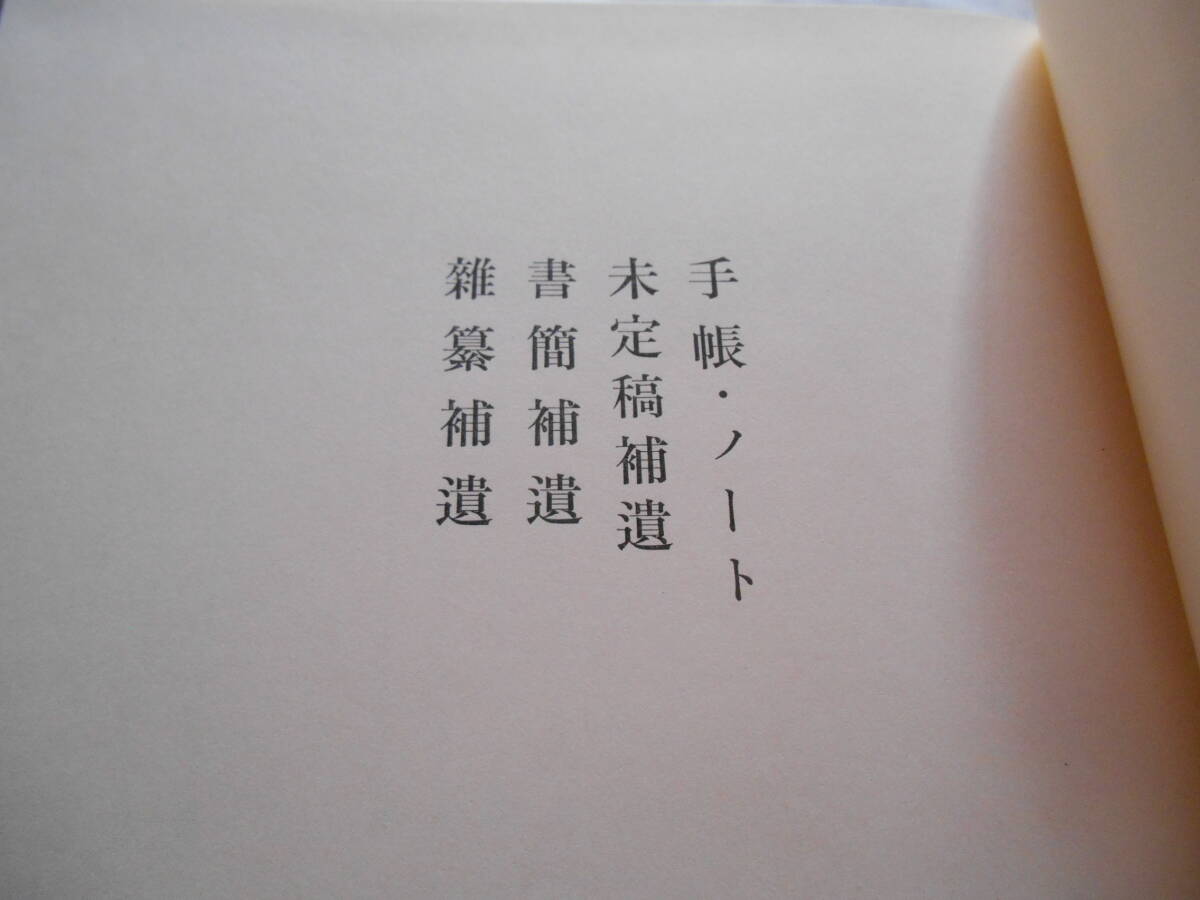 手帳・ノート
未定稿補遺
書簡補遺
雜纂補遺